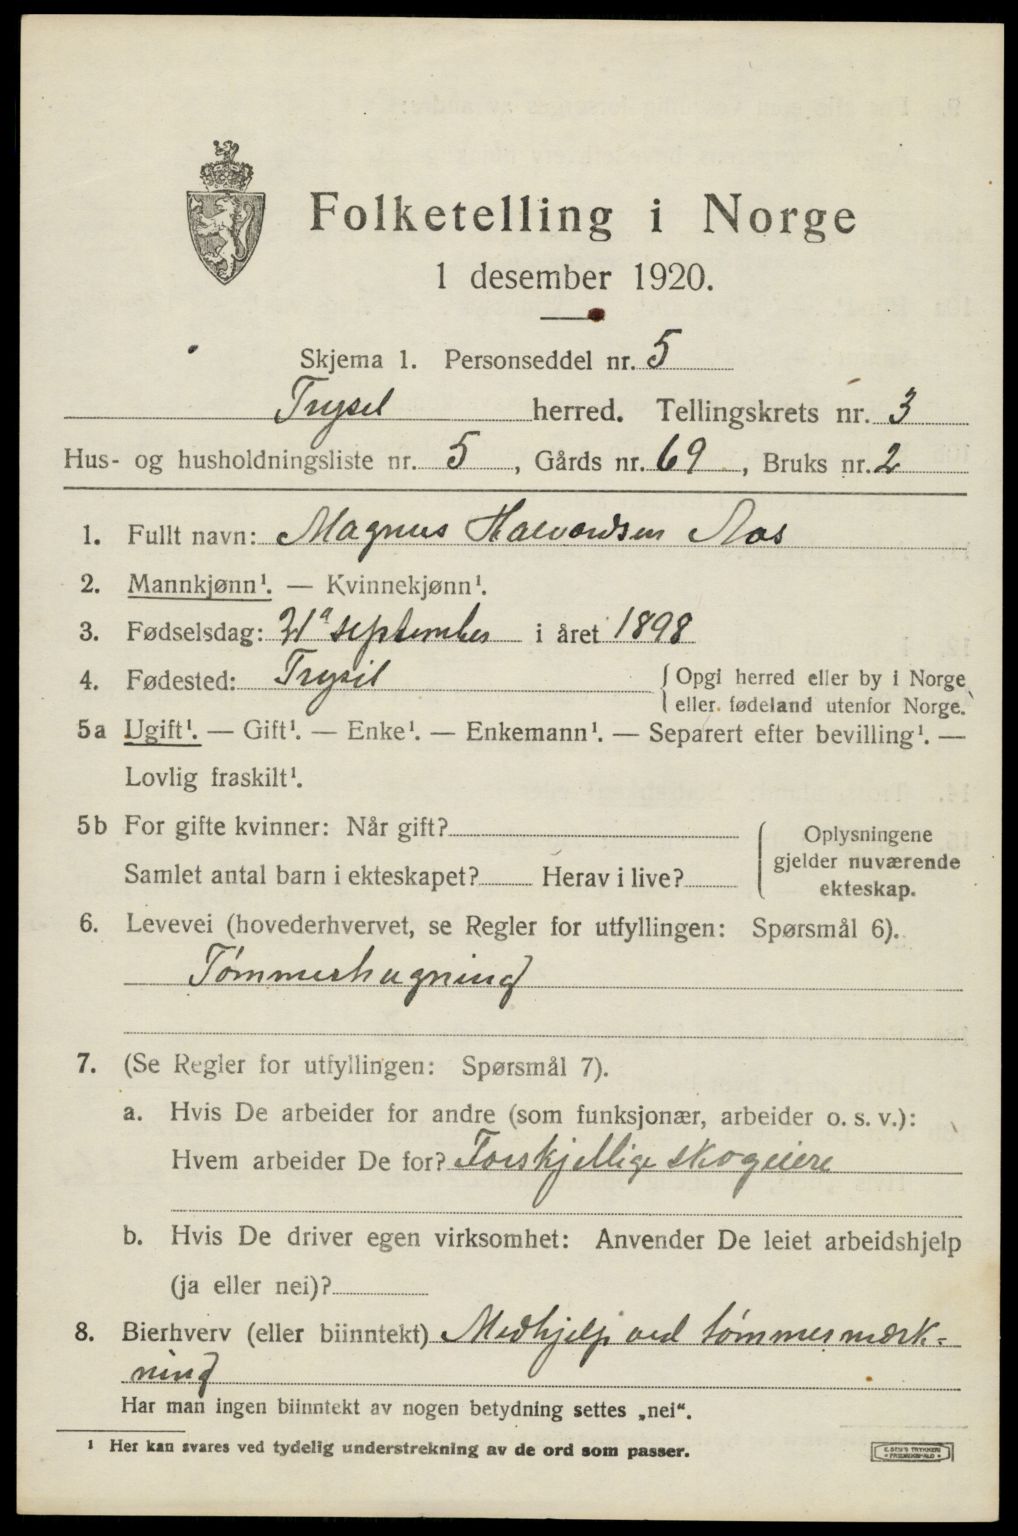 Folketelling i Norge
1 desember 1920.
Skjema 1. Personseddel nr. 5
Trysil herred. Tellingskrets nr. 3
Hus- og husholdningsliste nr. 5, Gårds nr. 69, Bruks nr. 2
1. Fullt navn: Magnus Halvordsen Aas
2. Mannkjønn¹. — Kvinnekjønn¹.
3. Fødselsdag: september i året 1898
4. Fødested: Trysil {Opgi herred eller by i Norge
eller fødeland utenfor Norge.
5a Ugift¹. — Gift¹. — Enke¹. — Enkemann¹. — Separert efter bevilling¹. —
Lovlig fraskilt¹.
5b For gifte kvinner: Når gift?
Samlet antal barn i ekteskapet? Herav i live?
{Oplysningene
gjelder nuværende
ekteskap.
6. Levevei (hovederhvervet, se Regler for utfyllingen: Spørsmål 6).
Tømmerhugning
7. (Se Regler for utfyllingen: Spørsmål 7).
a. Hvis De arbeider for andre (som funksjonær, arbeider o. s. v.):
Hvem arbeider De for? Forskjellige skogeiere
b. Hvis De driver egen virksomhet: Anvender De leiet arbeidshjelp
(ja eller nei)?
8. Bierhverv (eller biinntekt) Medhjelp ved tømmermærk-
ning
Har man ingen biinntekt av nogen betydning settes „nei“.
¹ Her kan svares ved tydelig understrekning av de ord som passer.